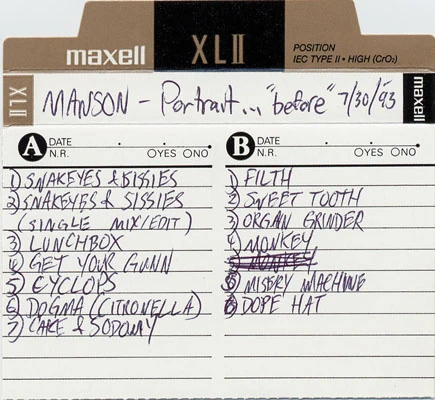 maxell
XLII
POSITION
IEC TYPE II • HIGH (CrO2)
XLII
MANSON - Portrait... "before" 7/30/93
maxell
A DATE
N.R. YES NO
1) SNAKEYES & SISSIES
2) SNAKEYES & SISSIES
(SINGLE MIX/EDIT)
3) LUNCHBOX
4) GET YOUR GUNN
5) CYCLOPS
6) DOGMA (CITRONELLA)
7) CAKE & SODOMY
B DATE
N.R. YES NO
1) FILTH
2) SWEET TOOTH
3) ORGAN GRINDER
4) MONKEY
5) MONKEY
5) MISERY MACHINE
6) DOPE HAT